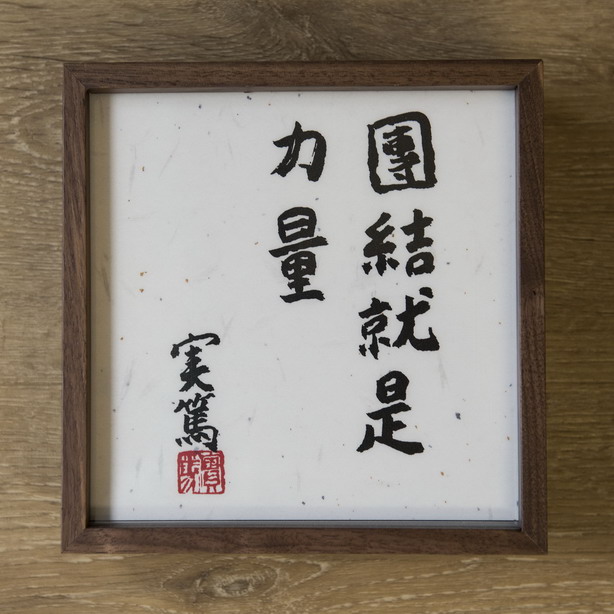 團結就是
力量
実篤